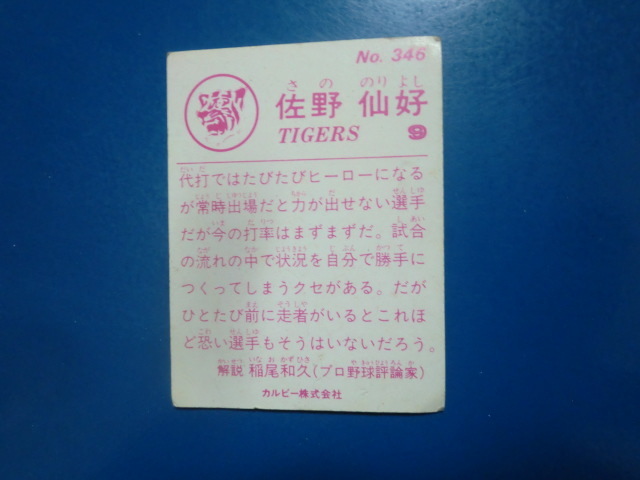 No. 346
さの のりよし
佐野 仙好
TIGERS 9
代打ではたびたびヒーローになる
が常時出場だと力が出せない選手
だが今の打率はまずまずだ。試合
の流れの中で状況を自分で勝手に
つくってしまうクセがある。だが
ひとたび前に走者がいるとこれほ
ど恐い選手もそうはいないだろう。
解説 稲尾和久(プロ野球評論家)
カルビー株式会社